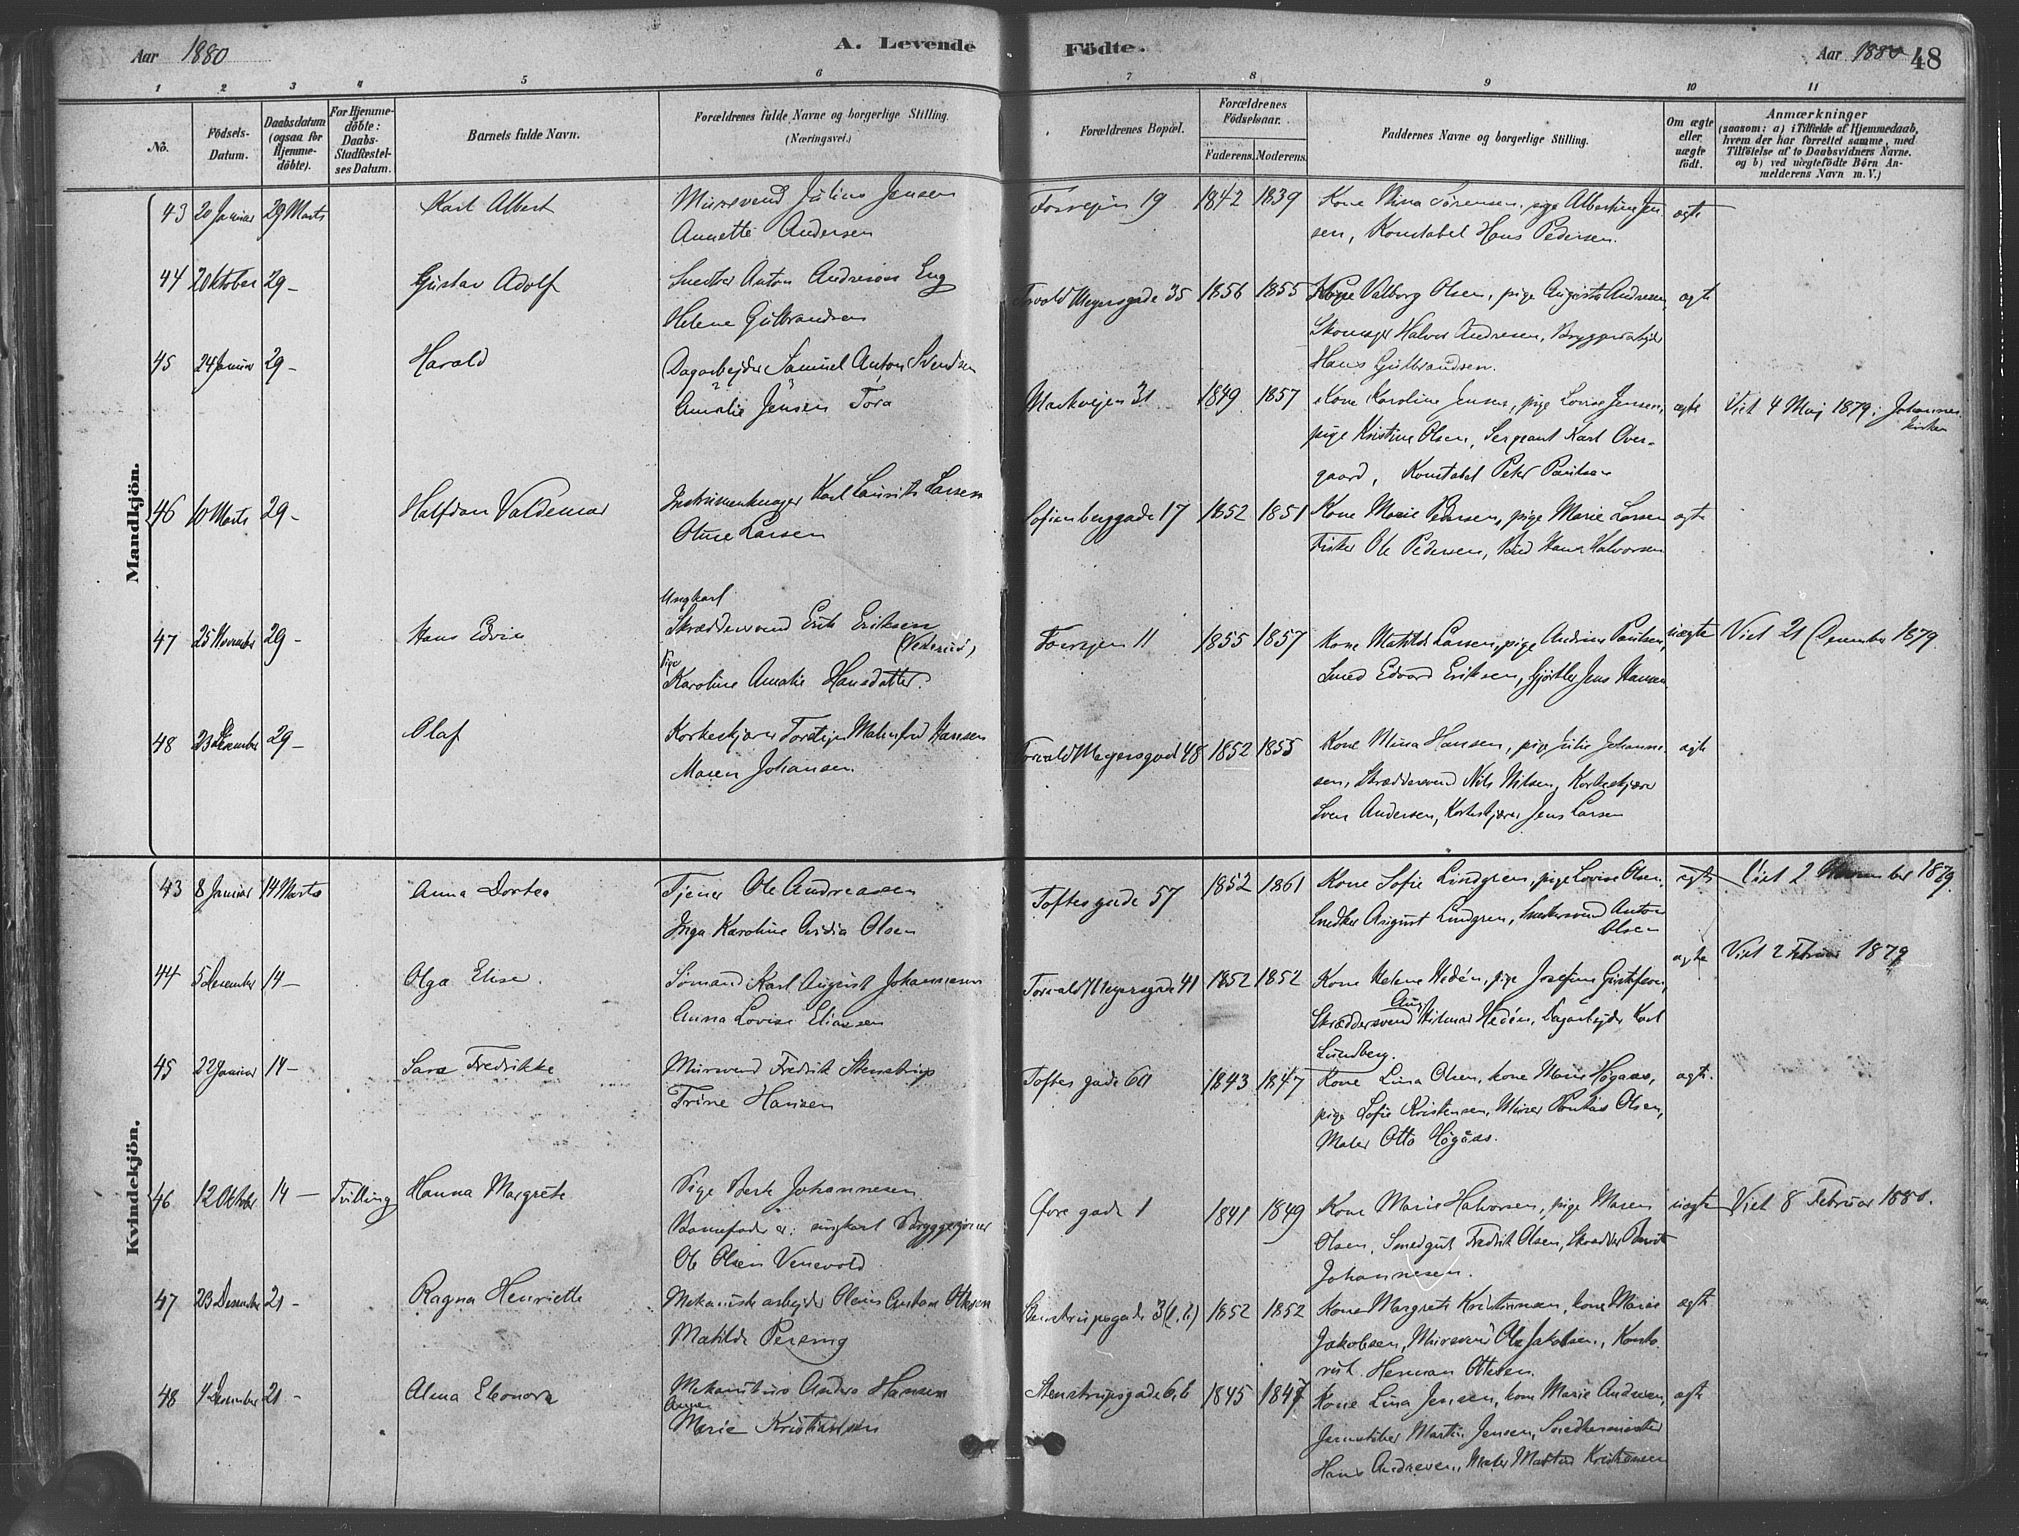 Aar 1880
A. Levende
Födte.
Aar 1880
48
1 2 3 4 5 6 7 8 9 10 11
No.
Födsels-Datum.
Daabsdatum (ogsaa for Hjemmedöbte).
For Hjemmedöbte: Daabs-Stadfæstelses Datum.
Barnets fulde Navn.
Forældrenes fulde Navne og borgerlige Stilling.
(Næringsvei.)
Forældrenes Bopæl.
Forældrenes Födselsaar.
Faderens. Moderens.
Faddernes Navne og borgerlige Stilling.
Om ægte eller uægte födt.
Anmærkninger
(saasom: a) i Tilfælde af Hjemmedaab,
hvem der har forrettet samme, med
Tilföielse af to Daabsvidners Navne.
og b) ved uægtefödte Börn An-
melderens Navn m. V.)
Mandkjön.
43 20 Januar 29 Marts Karl Albert Mursvend Julius Jensen
Annette Andersen
Fossvejen 19 1842 1839 Kone Mina Sørensen, pige Albertine Jen
sen, Konstabel Hans Pedersen.
ægte
44 2 Oktober 29 - Gustav Adolf Snedker Anton Andresen Eng
Helene Gulbrandsen
Torvald Meyersgade 35 1856 1855 Kone Valborg Olsen, pige Augusta Andresen,
Skomager Halvor Andresen, Bryggeriarbejder
Hans Gulbrandsen.
ægte
45 24 Januar 29 - Harald Dagarbejder Samuel Anton Svendsen
Amalie Jensen Tora
Markvejen 31 1849 1857 Kone Karoline Jensen, pige Lovise Jensen,
pige Kristine Olsen, Sergeant Karl Over-
gaard, Konstabel Peter Paulsen
ægte Viet 4 Maj 1879 i Johannes
kirken
46 10 Marts 29 - Halfdan Valdemar Instrumentmager Karl Laurits Larsen
Oline Larsen
Sofienberggade 17 1852 1851 Kone Marie Pedersen, pige Marie Larsen
Fisker Ole Pedersen, Bud Hans Halvorsen
ægte
47 25 November 29 - Hans Edvin Ungkarl
Skræddersvend Erik Eriksen
Pige
Karoline Amalie Hansdatter.
Fossvejen 11 1855 1857 Kone Matilde Larsen, pige Andrine Paulsen,
Smed Edvard Eriksen, Gjørtler Jens Hansen
uægte Viet 21 December 1879.
48 23 Desember 29 - Olaf Korkeskjærer Torstejn Malmfred Hansen
Maren Johansen.
Torvald Meyersgade 48 1852 1855 Kone Mina Hansen, pige Julie Johanne-
sen, Skræddersvend Nils Nilsen, Korkeskjærer
Sven Andersen, Korkeskjærer Jens Larsen
ægte
Kvindekjön.
43 8 Januar 14 Marts Anna Dortea Tjener Ole Andreassen
Inga Karoline Ovidia Olsen
Toftes gade 57 1852 1861 Kone Sofie Lindgren, pige Lovise Olsen,
Snedker August Lindgren, Snedkersvend Anton
Olsen
ægte Viet 2 November 1879.
44 5 Desember 14 - Olga Elise. Sømand Karl August Johannesen
Anna Lovise Eliassen
Torvald Meyersgade 41 1852 1852 Kone Helene Hedén, pige Josefine Gustafsen,
Aug
Skræddersvend Hilmar Hedén, Dagarbejder Karl
Lundberg.
ægte Viet 2 Februar 1879
45 22 Januar 14 - Sara Fredrikke Mursvend Fredrik Stenstrup
Trine Hansen
Toftes gade 60 1843 1847 Kone Lina Olsen, kone Marie Høgaas,
pige Sofie Kristensen, Murer Pontus Olsen,
Maler Otto Høgaas.
ægte.
46 12 Oktober 14 - Tvilling Hanna Margrete Pige Berte Johannesen
Barnefader er: ungkarl Bryggesjouer
Ole Olsen Venevold.
Øvre gade 1 1841 1849 Kone Marie Halvorsen, pige Maren
Olsen, Smedgut Fredrik Olsen, Skrædder Bernt
Johannesen.
uægte Viet 8 Februar 1880.
47 23 Desember 21 - Ragna Henriette Mekanisk arbejder Olaus Gustav Ottesen
Matilde Persen
Stenstrupsgade 3 1852 1852 Kone Margrete Kristiansen, kone Marie
Jakobsen, Mursvend Ole Jakobsen, Konto-
rist Herman Ottesen.
ægte
48 4 Desember 21 - Alma Eleonora Mekanikus Anders Hansen
Anne
Marie Kristiansen
Stenstrupsgade 6,b 1845 1847 Kone Lina Jensen, kone Marie Andresen,
Jernstøber Martin Jensen, Snedkermester
Hans Andresen, Maler Martin Kristiansen
ægte